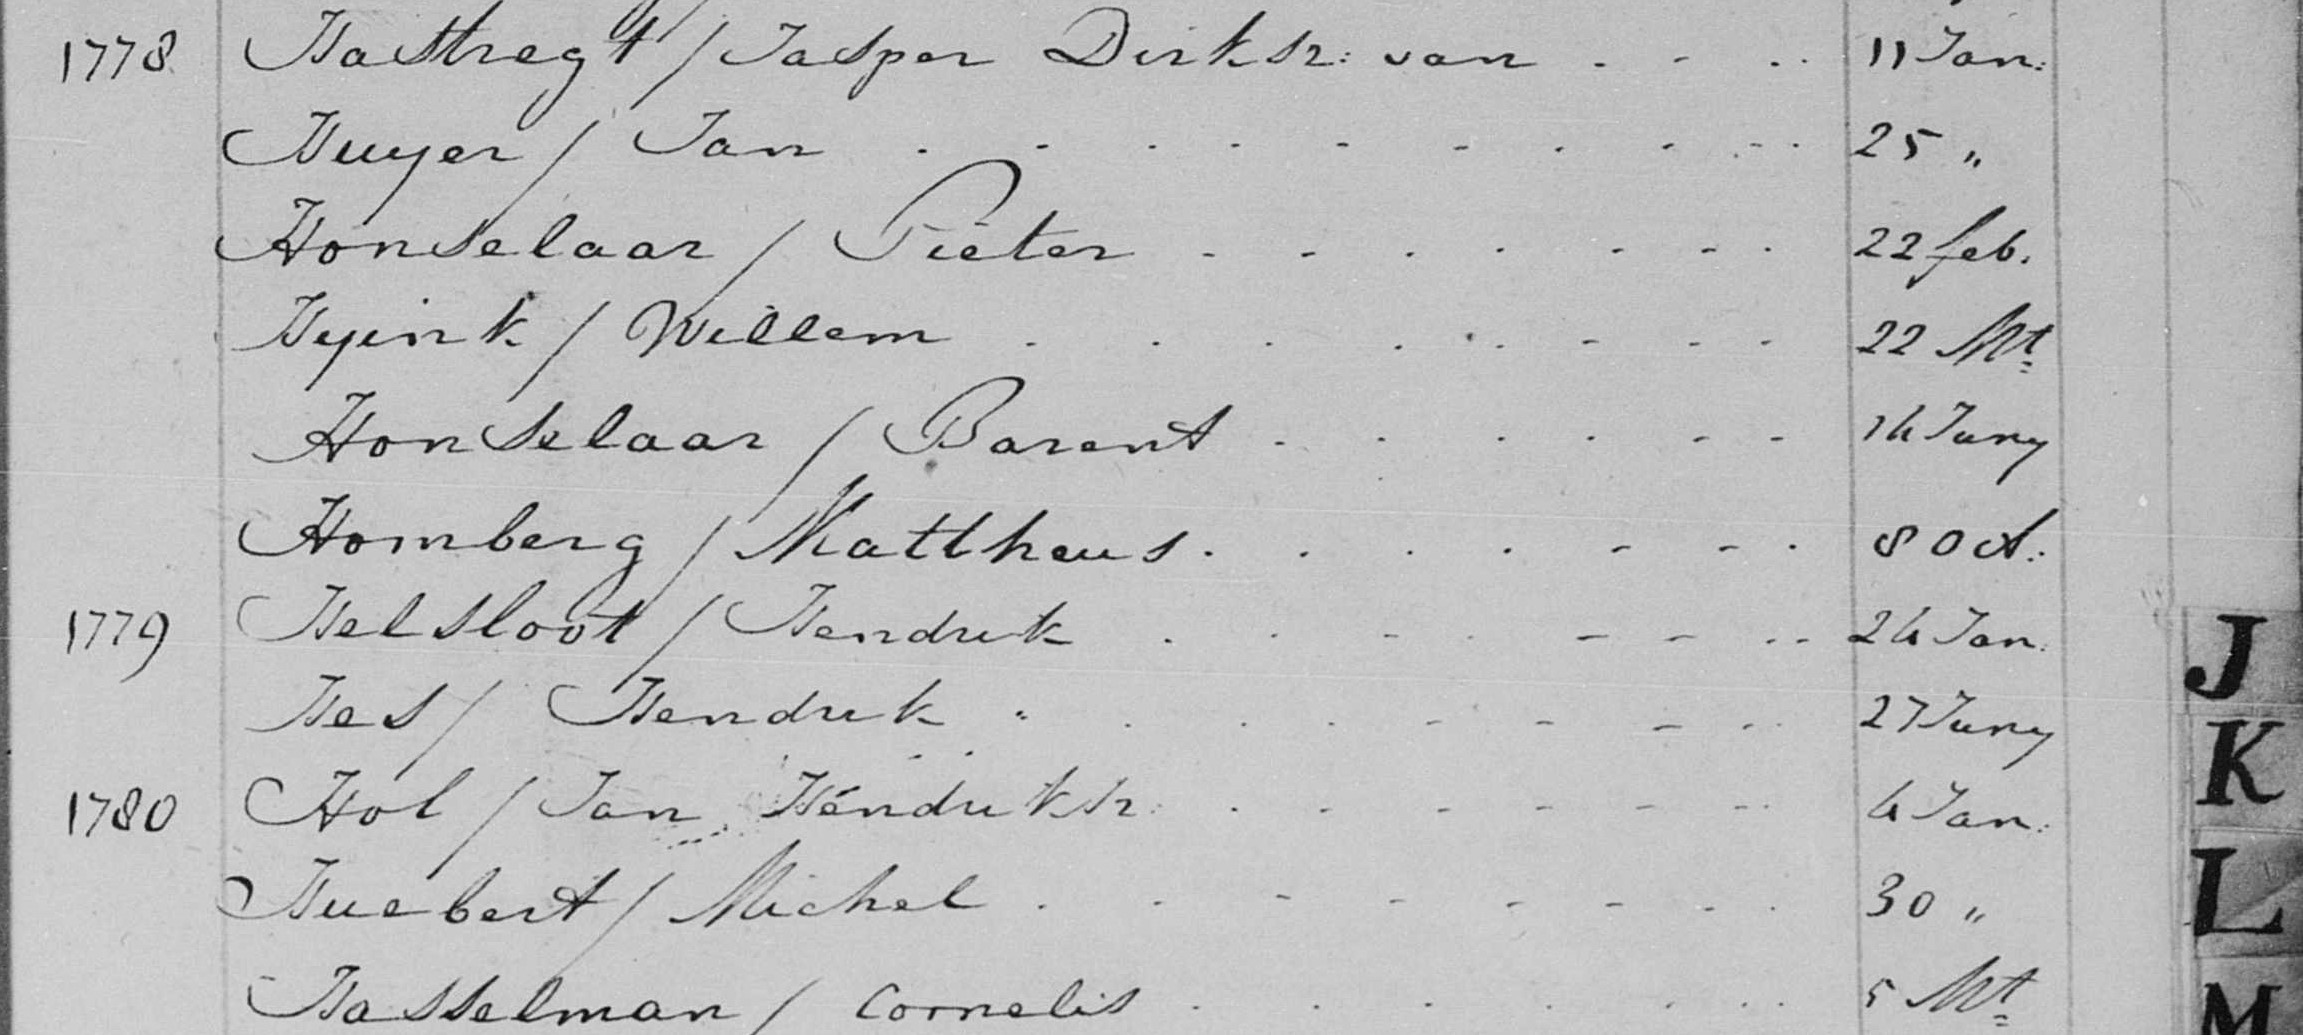 1778 Hastregt / Jasper Dirksz: van - - .. 11 Jan:
Huyer / Jan . . . . . . . . . 25 "
Honselaar / Pieter . . . . . . . 22 feb.
Hyink / Willem . . . . . . . . 22 Mt
Honselaar / Barent . . . . . . 14 Juny
Homberg / Mattheus . . . . . . . 8 Oct:
1779 Helsloot / Hendrik . . . . . . . 24 Jan.
Hes / Hendrik . . . . . . . . 27 Juny
1780 Hol / Jan Hendriksz: . . . . . . . 4 Jan:
Huebert / Michel . . . . . . . . 30 "
Hasselman / Cornelis . . . . . . 5 Mt
J
K
L
M